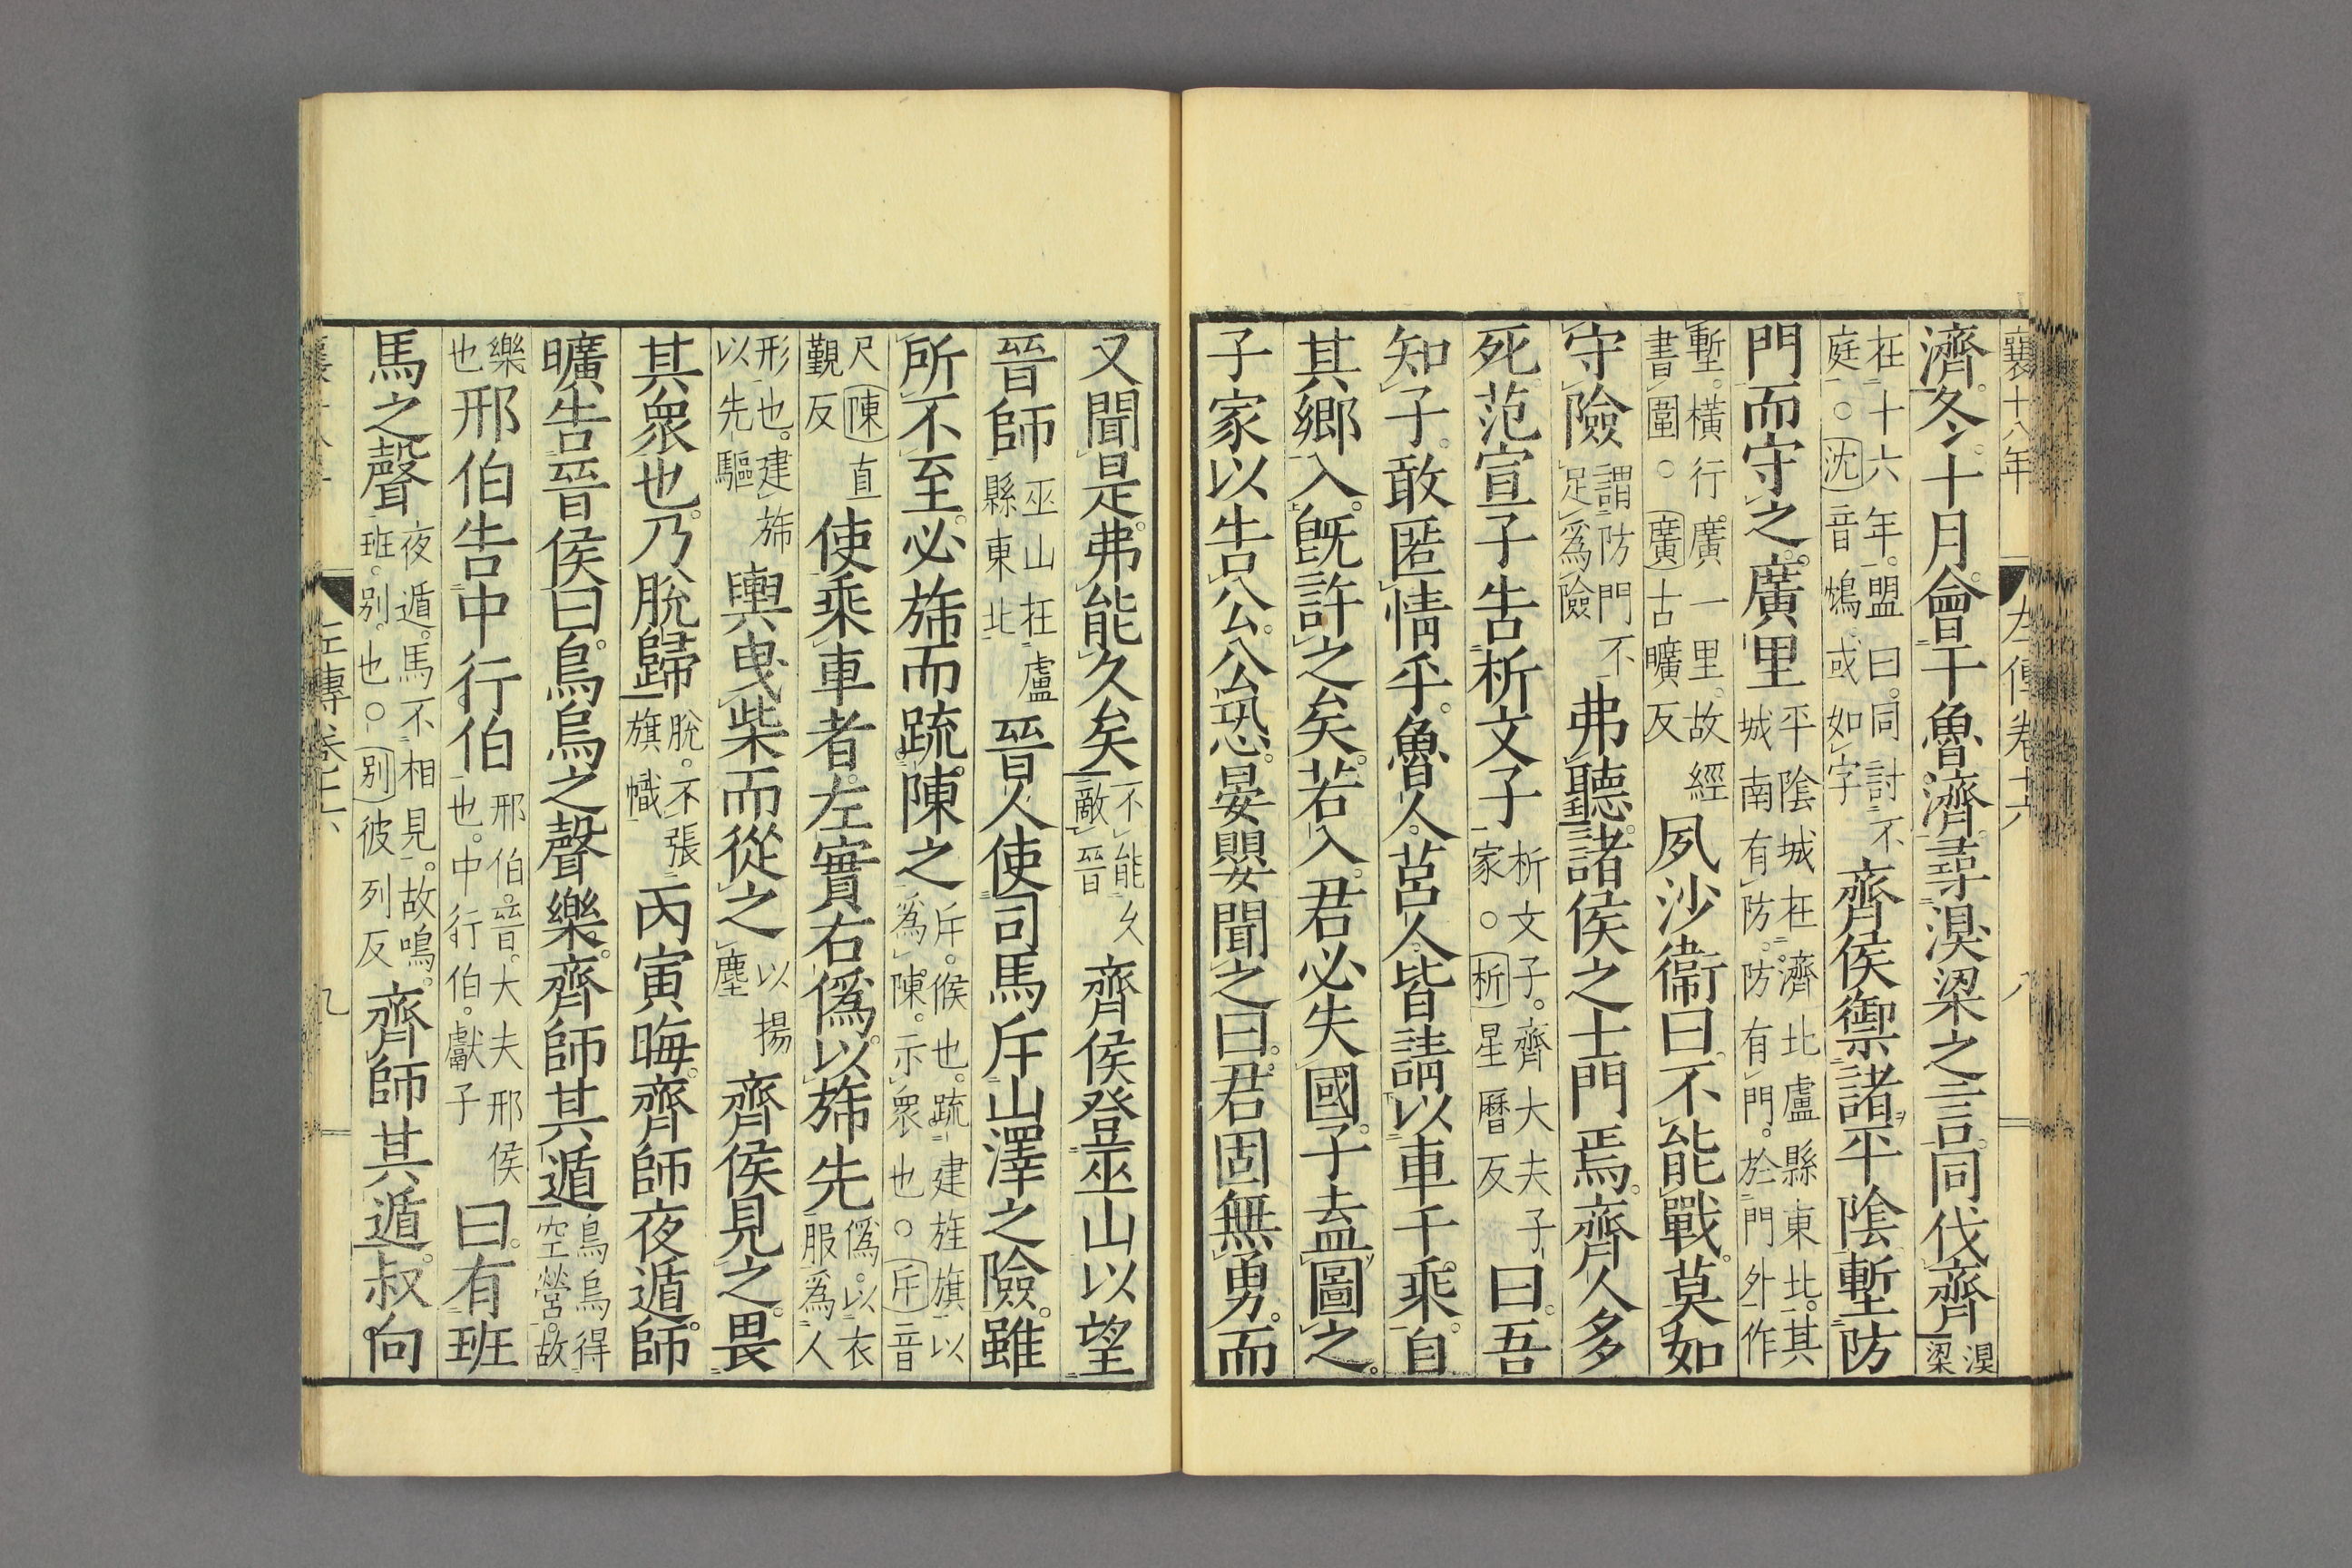 襄十八年 左傳卷十六 八
濟。冬。十月。會于魯濟。尋湨梁之言。同伐齊湨梁
在十六年。盟曰。同討不庭。○沈音鴆。或如字齊侯禦諸平陰。塹防
門而守之。廣里平陰城在濟北盧縣東北。其城南有防。防有門。於門外作
塹。橫行廣一里。故經書圍。○廣古曠反夙沙衞曰。不能戰。莫如
守險謂防門不足爲險弗聽。諸侯之士門焉。齊人多
死。范宣子告析文子析文子。齊大夫子家。○析星曆反曰。吾
知子。敢匿情乎。魯人。莒人。皆請以車千乘。自
其鄉入。旣許之矣。若入。君必失國。子盍圖之。
子家以告公。公恐。晏嬰聞之曰。君固無勇。而
又聞是。弗能久矣不能久敵晉齊侯登巫山以望
晉師巫山在盧縣東北晉人使司馬斥山澤之險。雖
所不至。必旆而疏。陳之斥。候也。疏建旌旗以爲陳。示衆也。○斥音
尺陳直覲反使乘車者。左實右僞。以旆先僞。以衣服爲人
形也。建旆以先驅輿曳柴而從之以揚塵齊侯見之。畏
其衆也。乃脫歸脫。不張旗幟丙寅晦。齊師夜遁。師
曠告晉侯曰。烏烏之聲樂。齊師其遁鳥烏得空營。故
樂也邢伯告中行伯邢伯。晉大夫邢侯也。中行伯。獻子曰。有班
馬之聲夜遁。馬不相見。故鳴。班。別也。○別彼列反齊師其遁。叔向
九